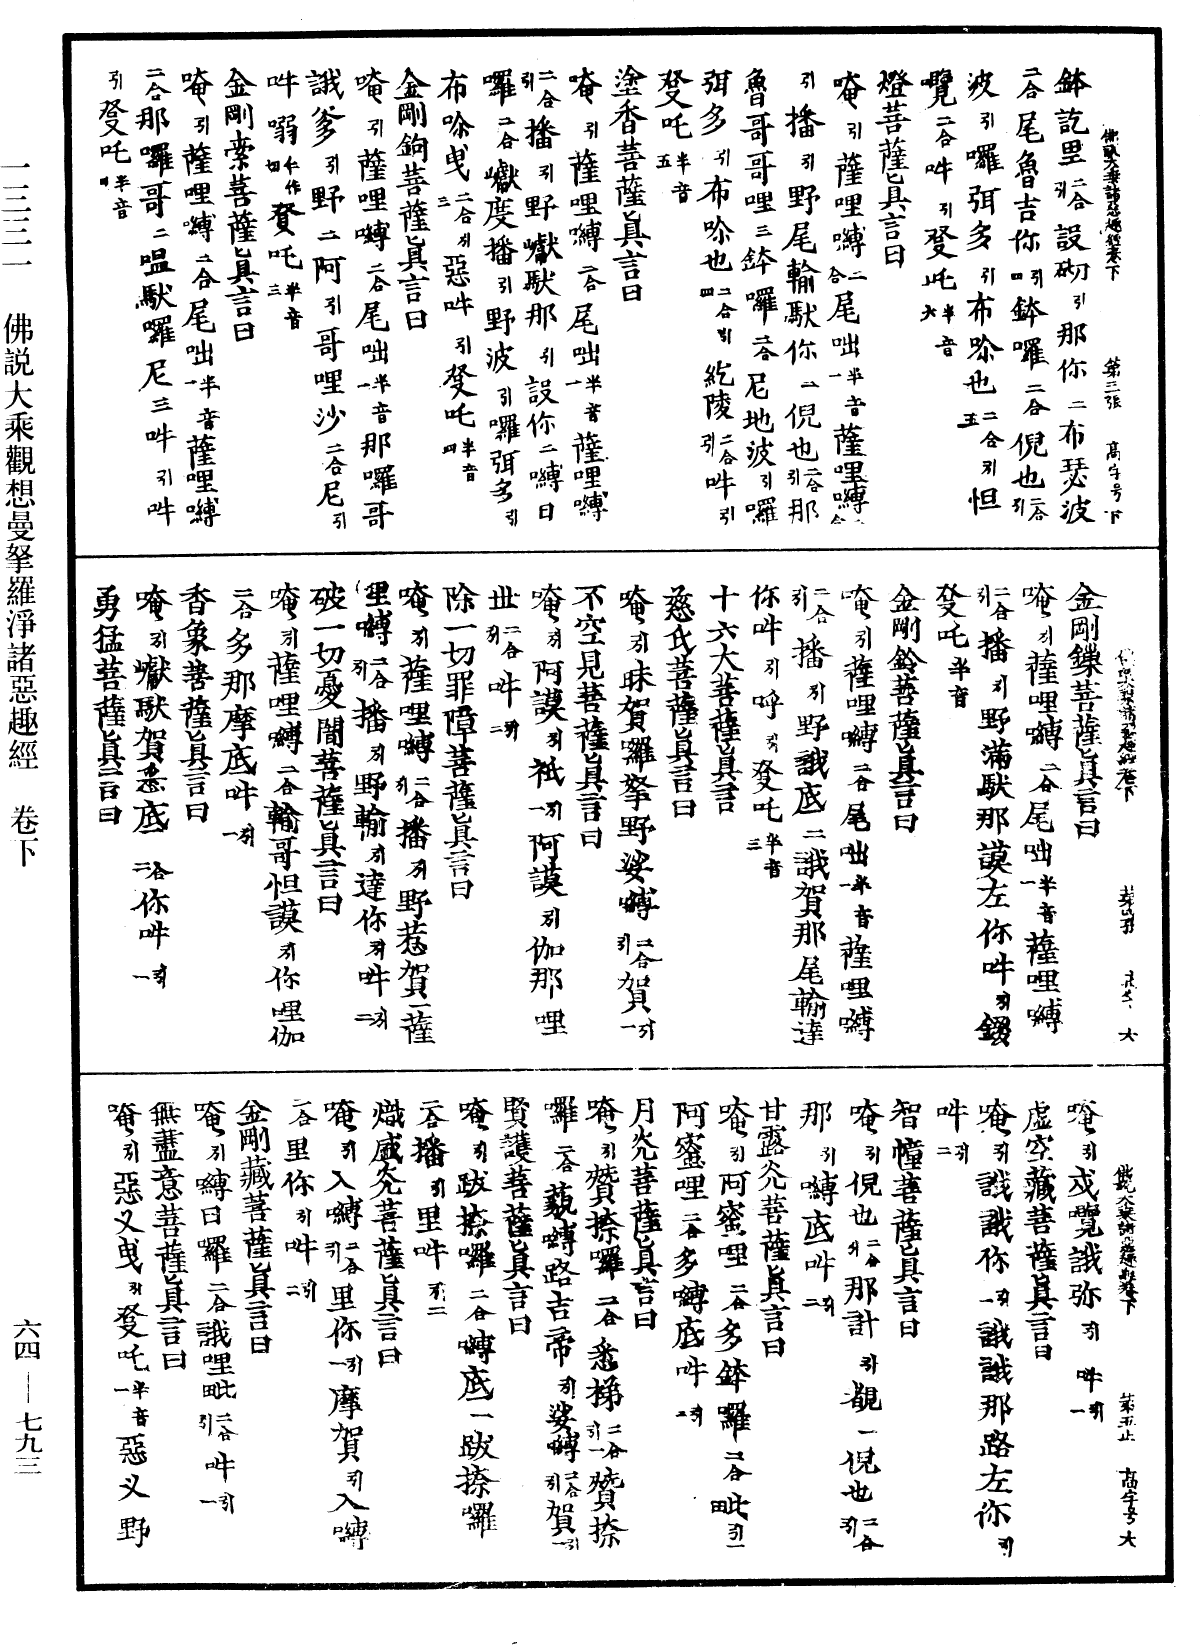 鉢訖里引二合設砌引那你二布瑟波
二合尾魯吉你四引鉢囉二合倪也二合引
波引囉弭多引布唥也二合引五怛
覽二合吽引癹吒半音六
燈菩薩眞言曰
唵引薩哩嚩二合尾咄半音一薩哩嚩二合
引播引野尾輸馱你二倪也二合引那
魯哥哥哩三鉢囉二合尼地波引囉
弭多引布唥也二合引四紇陵二合引吽引
癹吒半音五
塗香菩薩眞言曰
唵引薩哩嚩二合尾咄半音一薩哩嚩
二合引播引野巘馱那引設你二嚩日
囉二合巘度播引野波引囉弭多引
布唥曳二合引三惡吽引癹吒半音四
金剛鉤菩薩眞言曰
唵引薩哩嚩二合尾咄半音一那囉哥
誐爹引野二阿引哥哩沙二合尼引
吽嘮仁作切癹吒半音三
金剛索菩薩眞言曰
唵引薩哩嚩二合尾咄半音一薩哩嚩
二合那囉哥二嗢馱囉尼三吽引吽
引癹吒半音四
金剛鏁菩薩眞言曰
唵引薩哩嚩二合尾咄半音一薩哩嚩
二合引播引野滿馱那謨左你吽引鑁
癹吒半音
金剛鈴菩薩眞言曰
唵引薩哩嚩二合尾咄半音一薩哩嚩
二合引播引野誐底二誐賀那尾輸達
你吽引呼引癹吒半音三
十六大菩薩眞言
慈氏菩薩眞言曰
唵引昧賀囉拏野娑嚩二合引賀引一
不空見菩薩眞言曰
唵引阿謨引祇引一阿謨引伽那哩
世二合引吽引二
除一切罪障菩薩眞言曰
唵引薩哩嚩二合引播引野惹賀一薩
哩嚩二合引播引野輸引達你引吽引二
破一切憂闇菩薩眞言曰
唵引薩哩嚩二合輸哥怛謨引你哩伽
二合多那摩底吽引一
香象菩薩眞言曰
唵引巘馱賀悉底二合你吽引一
勇猛菩薩眞言曰
唵引戍覽誐弥引吽引一
虛空藏菩薩眞言曰
唵引誐誐你引一誐誐那路左你引
吽引二
智幢菩薩眞言曰
唵引倪也二合引那計引覩一倪也二合引
那引嚩底吽引二
甘露光菩薩眞言曰
唵引阿蜜哩二合多鉢囉二合毗引一
阿蜜哩二合多嚩底吽引二
月光菩薩眞言曰
唵引贊捺囉二合悉梯二合引一贊捺
囉二合藐嚩路吉帝引娑嚩二合引賀引一
賢護菩薩眞言曰
唵引跋捺囉二合嚩底一跋捺囉
二合播引里吽引二
熾盛光菩薩眞言曰
唵引入嚩二合里你引一摩賀引入嚩
二合里你引吽引二
金剛藏菩薩眞言曰
唵引嚩日囉二合誐哩毗二合引吽引一
無盡意菩薩眞言曰
唵引惡义曳引癹吒半音一惡义野
一三三一 佛説大乘觀想曼拏羅淨諸惡趣經 卷下
六四—七九三